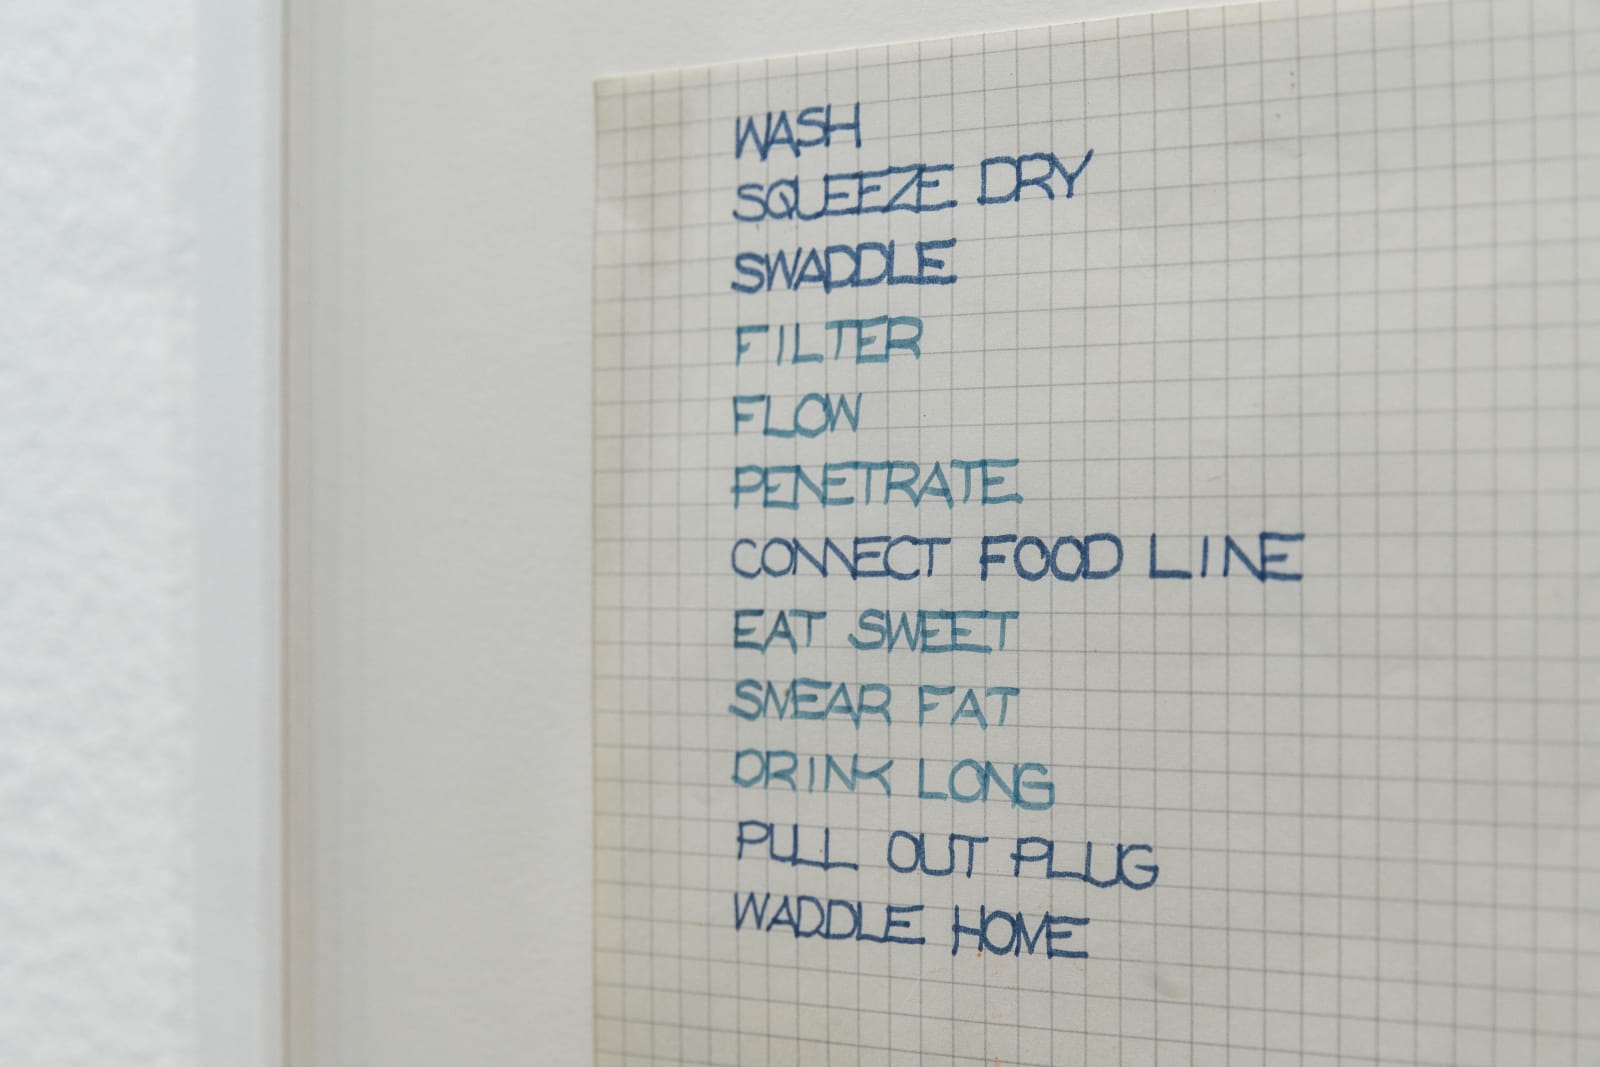 WASH
SQUEEZE DRY
SWADDLE
FILTER
FLOW
PENETRATE
CONNECT FOOD LINE
EAT SWEET
SMEAR FAT
DRINK LONG
PULL OUT PLUG
WADDLE HOME